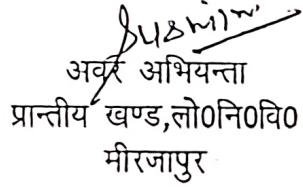 अवर अभियन्ता
प्रान्तीय खण्ड,लो0नि0वि0
मीरजापुर